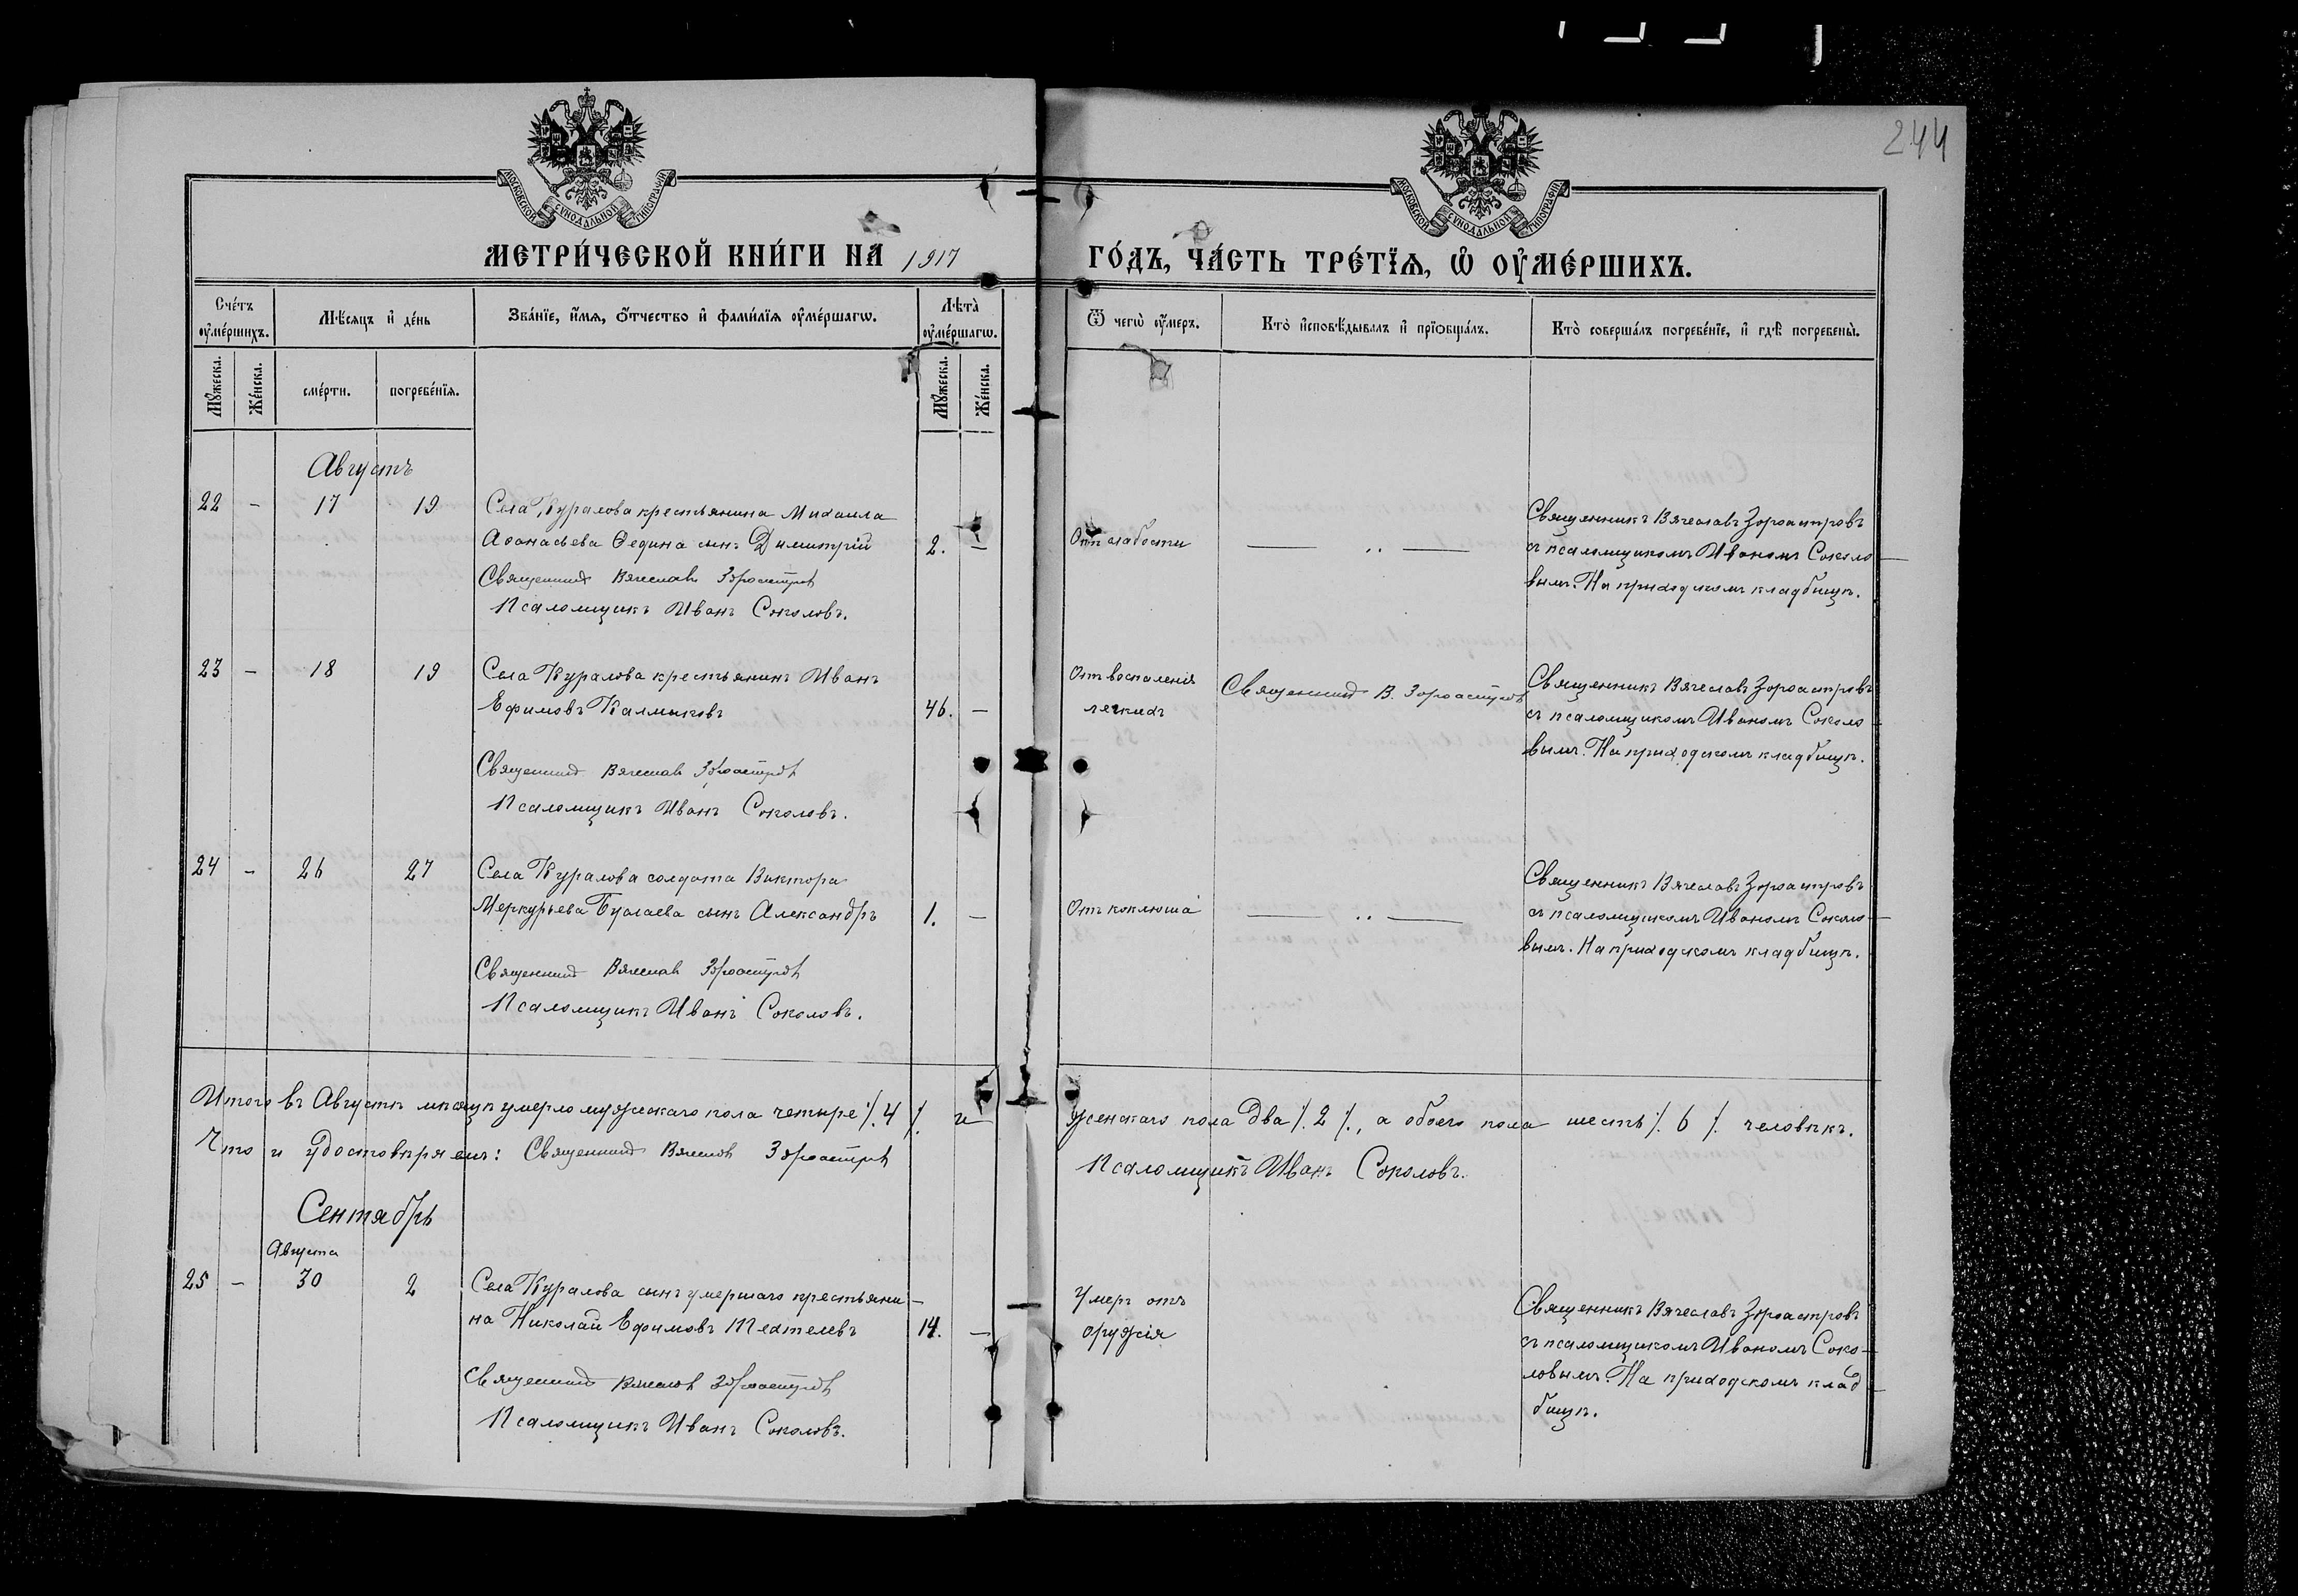 244
МОСКОВСКОЙ СѴНОДАЛЬНОЙ ТИПОГРАФІИ
МОСКОВСКОЙ СѴНОДАЛЬНОЙ ТИПОГРАФІИ
МЕТРИ́ЧЕСКОЙ КНИ́ГИ НА 1917
ГО́ДЪ, ЧА́СТЬ ТРЕ́ТЇѦ, Ѡ҆ ОУ҆МЕ́РШИХЪ.
Сче́тъ оу҆ме́ршихъ.
Мѣ́сяцъ и҆ де́нь
Зва́нїе, и҆́мя, о҆́тчество и҆ фами́лїя оу҆ме́ршагѡ.
Лѣта̀ оу҆ме́ршагѡ.
Ѿ чегѡ̀ оу҆́меръ.
Кто̀ и҆сповѣ́дывалъ и҆ прїѡбща́лъ.
Кто̀ соверша́лъ погребе́нїе, и҆ гдѣ̀ погребены̀.
Мꙋ́жеска.
Же́нска.
сме́рти.
погребе́нїя.
Мꙋ́жеска.
Же́нска.
Августъ
22 - 17 19 Села Куралова крестьянина Михаила
Аѳанасьева Ѳедина сынъ Димитрій 2. -
Священникъ Вячеславъ Зороастровъ
Псаломщикъ Иванъ Соколовъ.
Отъ слабости
— .. —
Священникъ Вячеславъ Зороастровъ
съ псаломщикомъ Иваномъ Соколо-
вымъ. На приходскомъ кладбищѣ.
23 - 18 19 Села Куралова крестьянинъ Иванъ
Ефимовъ Калмыковъ 46. -
Священникъ Вячеславъ Зороастровъ
Псаломщикъ Иванъ Соколовъ.
Отъ воспаленія
легкихъ
Священникъ В. Зороастровъ
Священникъ Вячеславъ Зороастровъ
съ псаломщикомъ Иваномъ Соколо-
вымъ. На приходскомъ кладбищѣ.
24 - 26 27 Села Куралова солдата Виктора
Меркурьева сынъ Александръ 1. -
Священникъ Вячеславъ Зороастровъ
Псаломщикъ Иванъ Соколовъ.
Отъ коклюша
— .. —
Священникъ Вячеславъ Зороастровъ
съ псаломщикомъ Иваномъ Соколо-
вымъ. На приходскомъ кладбищѣ.
Итого въ Августѣ мѣсяцѣ умерло мужескаго пола четыре /. 4 /. и
женскаго пола два /. 2 /., а обоего пола шесть /. 6 /. человѣкъ.
Что и удостовѣряемъ: Священникъ Вячеславъ Зороастровъ
Псаломщикъ Иванъ Соколовъ.
Сентябрь
Августа
25 - 30 2 Села Куралова сынъ умершаго крестьяни-
на Николай Ефимовъ 14. -
Священникъ Вячеславъ Зороастровъ
Псаломщикъ Иванъ Соколовъ.
Умеръ отъ
оружія
Священникъ Вячеславъ Зороастровъ
съ псаломщикомъ Иваномъ Соко-
ловымъ. На приходскомъ клад-
бищѣ.